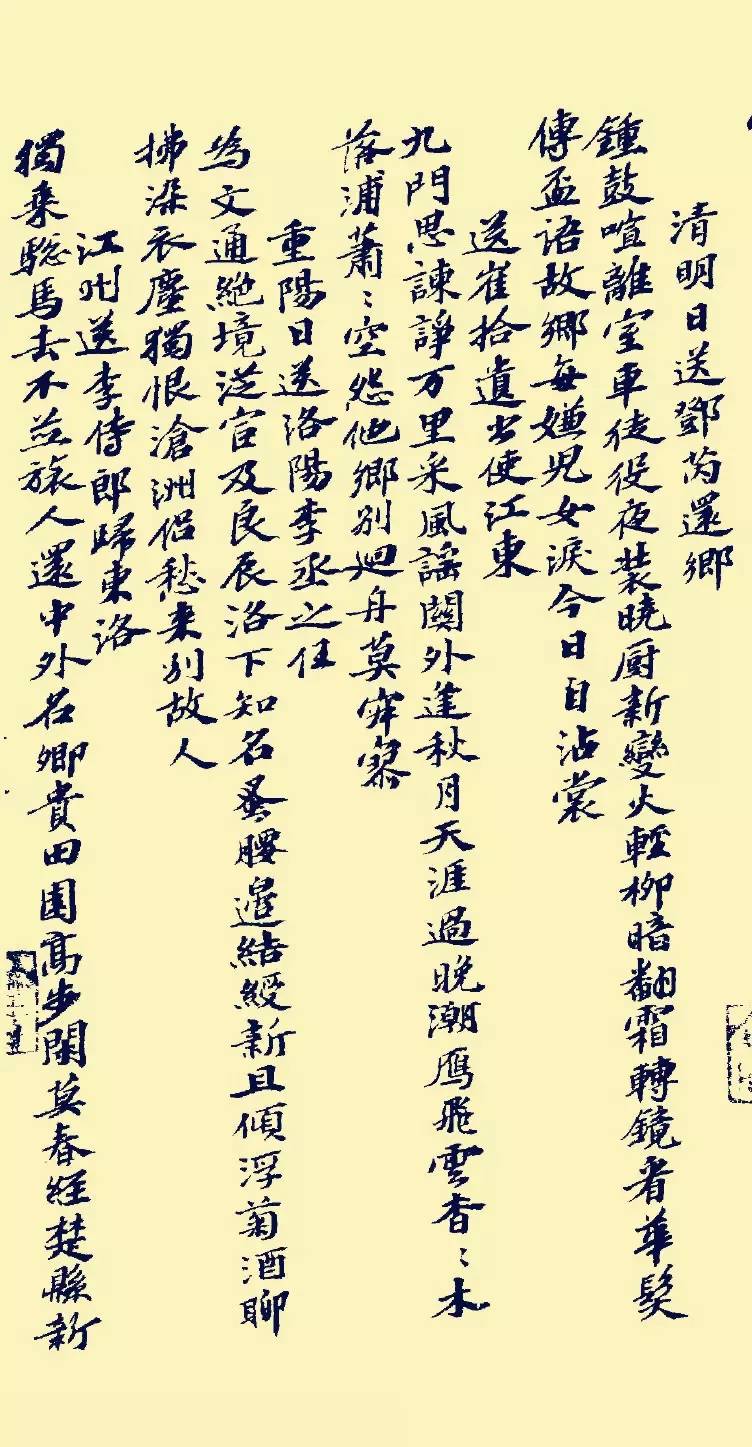 清明日送鄧芮還鄉
鍾鼓喧離室車徒役夜裝曉厨新變火輕柳暗翻霜轉鏡看華髮
傳盃語故鄉每嫌兒女淚今日自沾裳
送崔拾遺出使江東
九門思諫諍万里采風謠關外逢秋月天涯過晚潮鴈飛雲杳〻木
落浦蕭〻空怨他鄉別迴舟莫寂寥
重陽日送洛陽李丞之任
為文通絶境從宦及良辰洛下知名蚤腰邊結綬新且傾浮菊酒聊
拂染衣塵獨恨滄洲侣愁来別故人
江州送李侍郎歸東洛
獨乘驄馬去不並旅人還中外名卿貴田園高步閑莫春經楚縣新